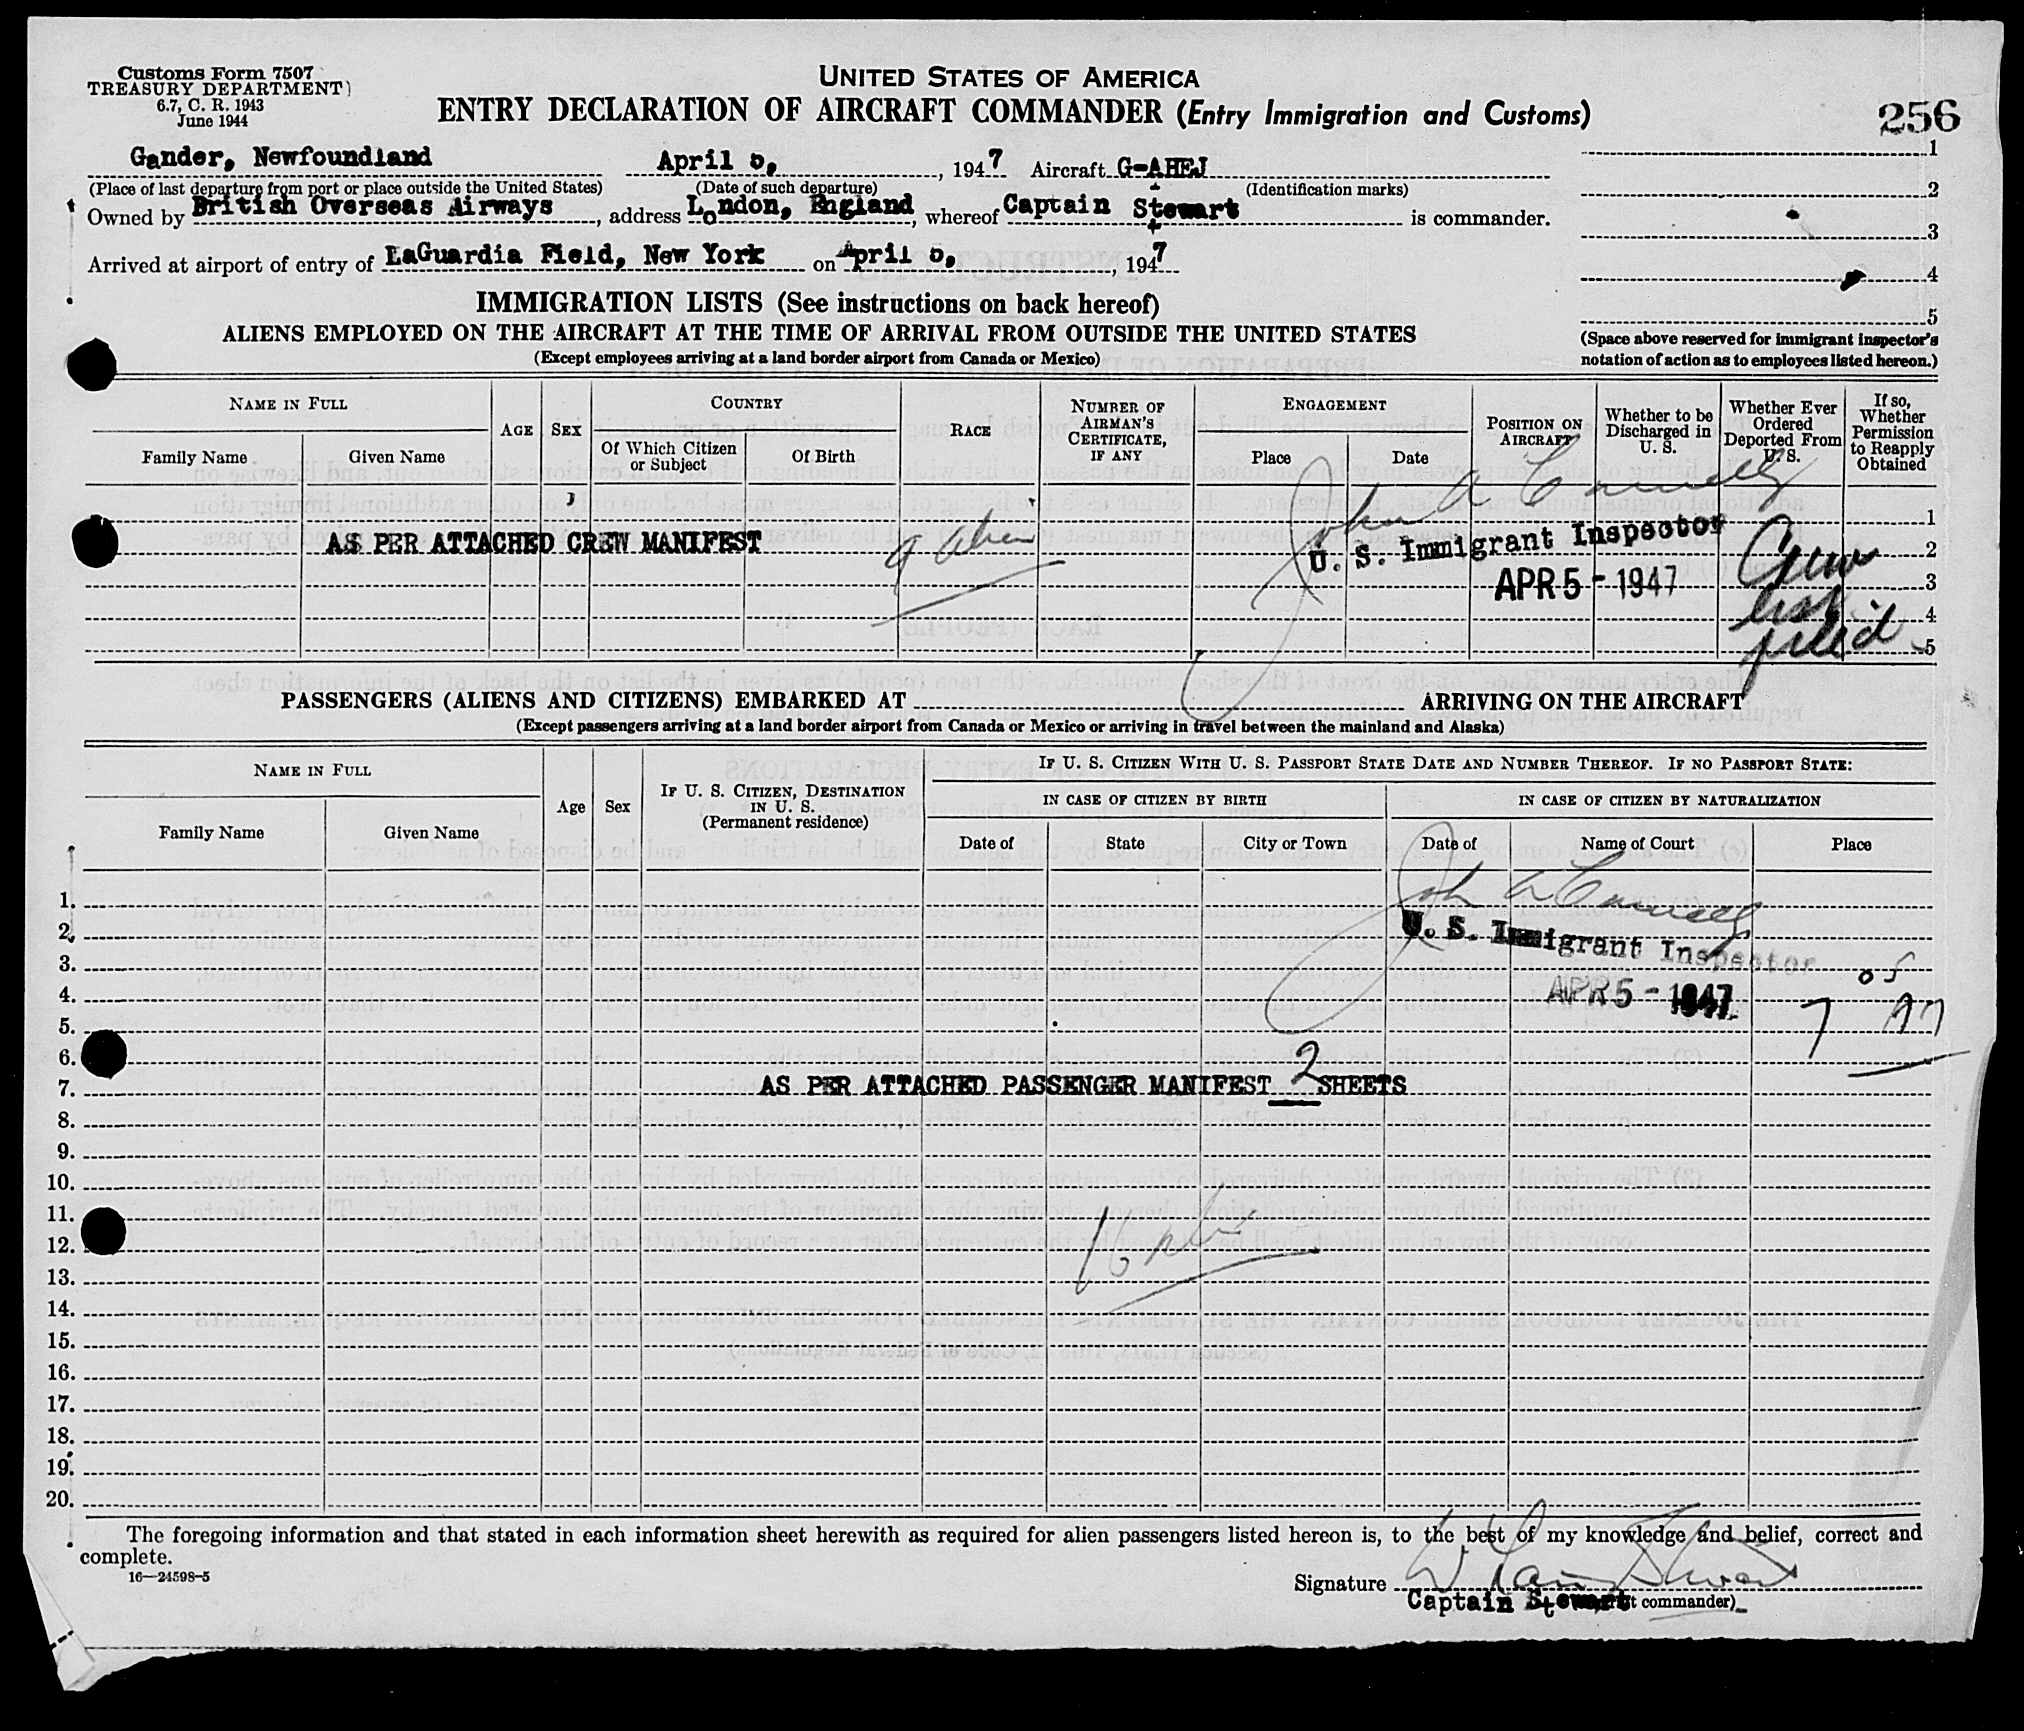 Customs Form 7507
TREASURY DEPARTMENT
6.7, C. R. 1943
June 1944
UNITED STATES OF AMERICA
ENTRY DECLARATION OF AIRCRAFT COMMANDER (Entry Immigration and Customs)
256
Gander, Newfoundland April 5, 1947 Aircraft G-AHEJ
(Place of last departure from port or place outside the United States) (Date of such departure) (Identification marks)
Owned by British Overseas Airways, address London, England, whereof Captain Stewart is commander.
Arrived at airport of entry of LaGuardia Field, New York on April 5, 1947
1
2
3
4
5
(Space above reserved for immigrant inspector's
notation of action as to employees listed hereon.)
IMMIGRATION LISTS (See instructions on back hereof)
ALIENS EMPLOYED ON THE AIRCRAFT AT THE TIME OF ARRIVAL FROM OUTSIDE THE UNITED STATES
(Except employees arriving at a land border airport from Canada or Mexico)
NAME IN FULL
Family Name
Given Name
AGE
SEX
COUNTRY
Of Which Citizen
or Subject
Of Birth
RACE
NUMBER OF
AIRMAN'S
CERTIFICATE,
IF ANY
ENGAGEMENT
Place
Date
POSITION ON
AIRCRAFT
Whether to be
Discharged in
U. S.
Whether Ever
Ordered
Deported From
U. S.
If so,
Whether
Permission
to Reapply
Obtained
John A
AS PER ATTACHED CREW MANIFEST
9 alien
U. S. Immigrant Inspector
APR 5 - 1947
Crew
list
filed
1
2
3
4
5
PASSENGERS (ALIENS AND CITIZENS) EMBARKED AT ARRIVING ON THE AIRCRAFT
(Except passengers arriving at a land border airport from Canada or Mexico or arriving in travel between the mainland and Alaska)
NAME IN FULL
Family Name
Given Name
Age
Sex
IF U. S. CITIZEN, DESTINATION
IN U. S.
(Permanent residence)
IF U. S. CITIZEN WITH U. S. PASSPORT STATE DATE AND NUMBER THEREOF. IF NO PASSPORT STATE:
IN CASE OF CITIZEN BY BIRTH
Date of
State
City or Town
IN CASE OF CITIZEN BY NATURALIZATION
Date of
Name of Court
Place
John A
U. S. Immigrant Inspector
APR 5 - 1947
1.
2.
3.
4.
5.
6.
7. AS PER ATTACHED PASSENGER MANIFEST 2 SHEETS
8.
9.
10.
11.
12.
13.
14.
15.
16.
17.
18.
19.
20.
The foregoing information and that stated in each information sheet herewith as required for alien passengers listed hereon is, to the best of my knowledge and belief, correct and
complete.
16—24598-5
Signature Stewart
Captain Stewart commander)